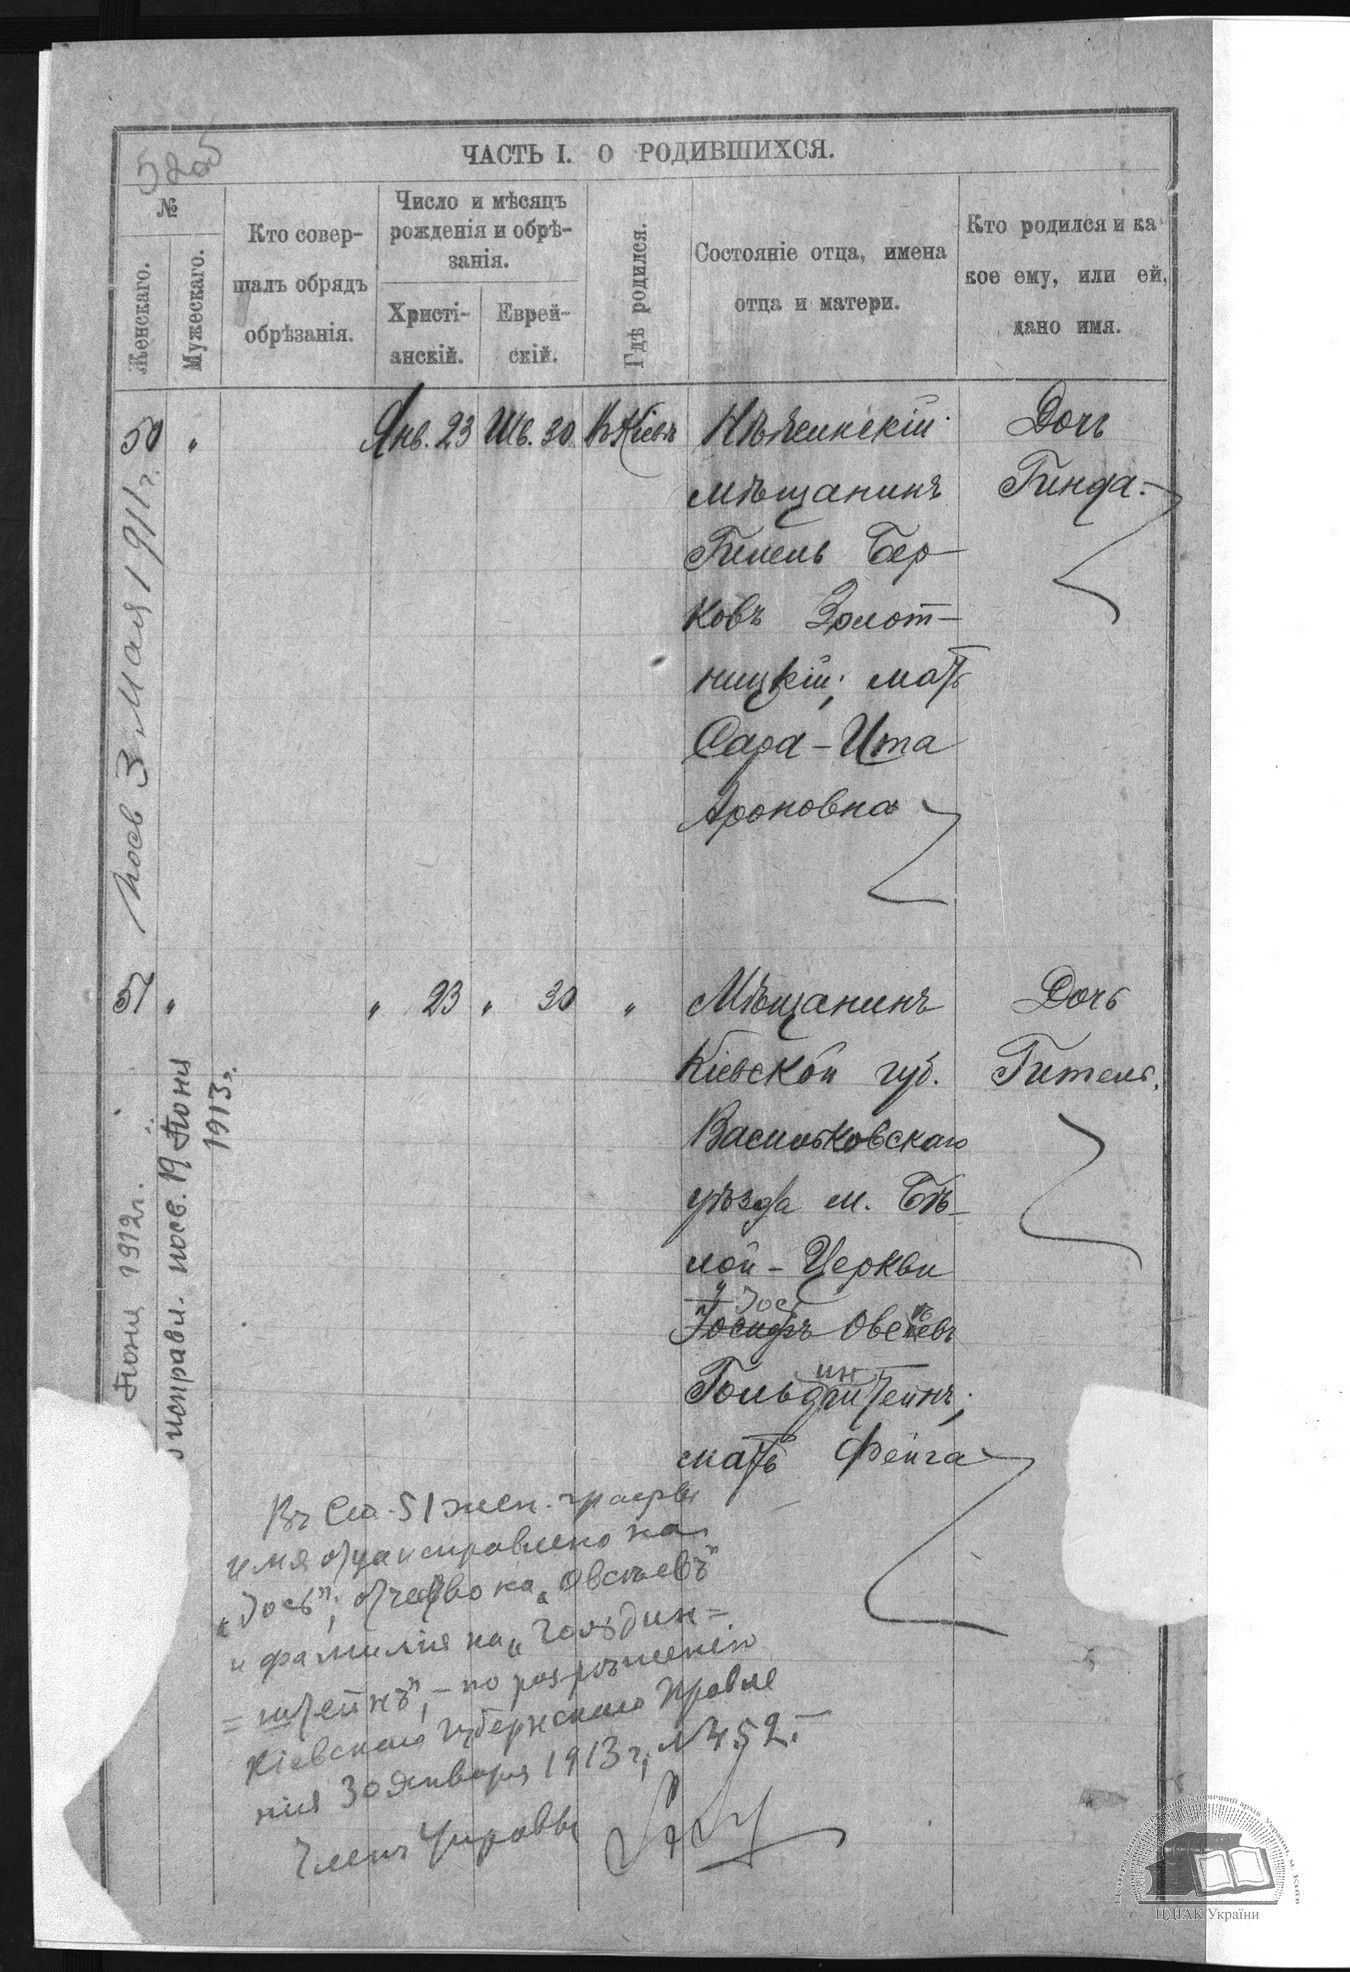 ЧАСТЬ I. О РОДИВШИХСЯ.
№
Женскаго.
Мужескаго.
Кто совер-
шалъ обрядъ
обрѣзанія.
Число и мѣсяцъ
рожденія и обрѣ-
занія.
Христі-
анскій.
Еврей-
скій.
Гдѣ родился.
Состояніе отца, имена
отца и матери.
Кто родился и ка
кое ему, или ей,
дано имя.
50 " Янв. 23 Шв. 30 В Кіевѣ
Нѣжинскій
мѣщанинъ
Гилель Бер-
ковъ Золот-
ницкій; мать
Сара-Ита
Ароновна
Дочь
Гинда.
3 Мая 1911 г.
51 " " 23 " 30 "
Мѣщанинъ
Кіевской губ.
Васильковскаго
уѣзда м. Бѣ-
лой-Церкви
Іось
Іосифъ Овсѣевъ
ин
Гольдштейнъ;
мать Фейга
Дочь
Гитель.
Іюня 1912 г.
исправл. посв. 19 Іюня
1913 г.
Въ Ст. 51 жен. графы
имя отца исправлено на
"Іось"; отчество на "Овсѣевъ"
и фамилія на "Гольдин=
=штейнъ", - по разрѣшенію
Кіевскаго Губернскаго Правле
нія 30 Января 1913 г., № 452.-
Членъ Управы
ЦДІАК України